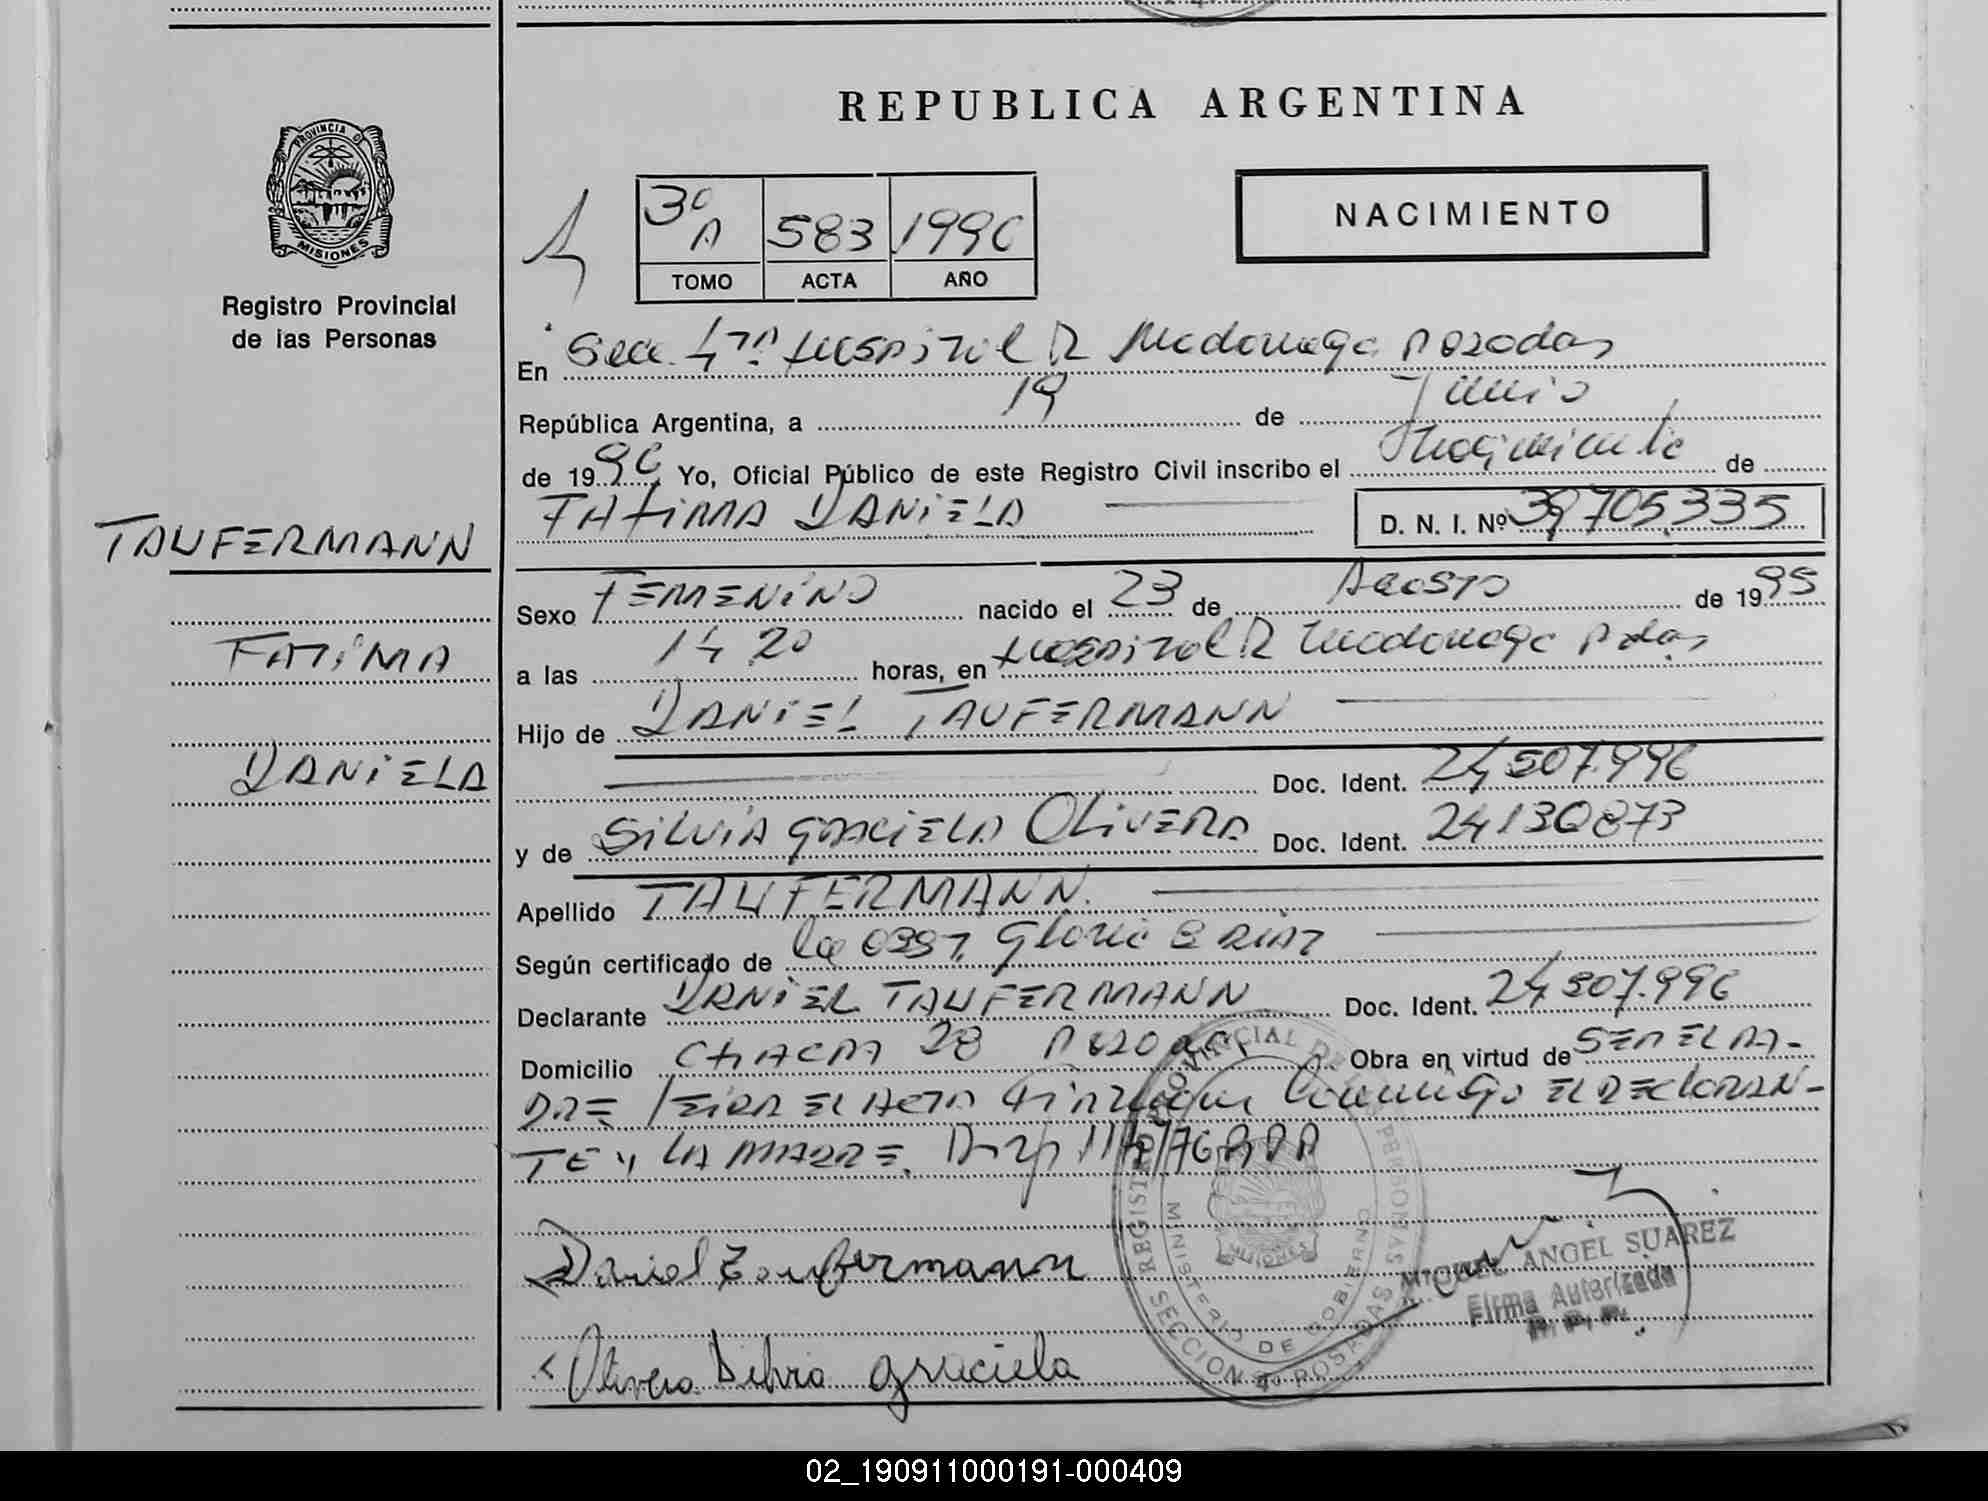 REPUBLICA ARGENTINA
PROVINCIA D
MISIONES
Registro Provincial
de las Personas
3º A 583 1996
TOMO ACTA AÑO
NACIMIENTO
En Secc. 4ta Hospital R Madariaga Posadas
República Argentina, a 19 de Junio
de 1996 Yo, Oficial Público de este Registro Civil inscribo el Nacimiento de
FATIMA DANIELA D. N. I. Nº 39705335
TAUFERMANN
FATIMA
DANIELA
Sexo FEMENINO nacido el 23 de Agosto de 1995
a las 14 20 horas, en Hospital R Madariaga Pdas
Hijo de DANIEL TAUFERMANN
Doc. Ident. 24507.996
y de SILVIA GRACIELA OLIVERA Doc. Ident. 24130873
Apellido TAUFERMANN.
Según certificado de la Obst. Gloria E Diaz
Declarante DANIEL TAUFERMANN Doc. Ident. 24507.996
Domicilio CHACRA 28 Posadas Obra en virtud de SER EL PA-
DRE leida EL ACTA firman Conmigo EL DECLARAN-
TE y LA MADRE.
Daniel Taufermann
Olivera Silvia graciela
REGISTRO PROVINCIAL DE LAS PERSONAS
SECCION 4º POSADAS
MINISTERIO DE GOBIERNO
MISIONES
MIGUEL ANGEL SUAREZ
Firma Autorizada
R. P. P.
02_190911000191-000409